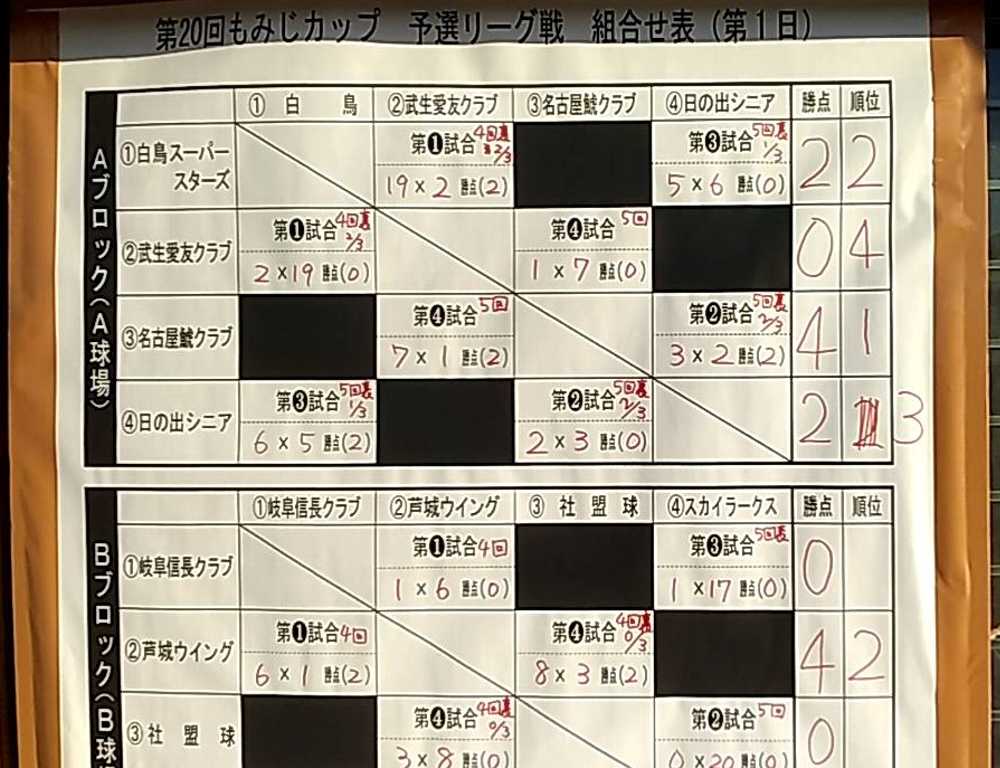 第20回もみじカップ 予選リーグ戦 組合せ表(第1日)
Aブロック(A球場)
① 白 鳥 ②武生愛友クラブ ③名古屋鯱クラブ ④日の出シニア 勝点 順位
①白鳥スーパースターズ
第❶試合 4回裏 2/3
19×2 勝点(2)
第❸試合 5回裏 1/3
5×6 勝点(0)
2 2
②武生愛友クラブ
第❶試合 4回裏 2/3
2×19 勝点(0)
第❹試合 5回
1×7 勝点(0)
0 4
③名古屋鯱クラブ
第❹試合 5回
7×1 勝点(2)
第❷試合 5回裏 2/3
3×2 勝点(2)
4 1
④日の出シニア
第❸試合 5回裏 1/3
6×5 勝点(2)
第❷試合 5回裏 2/3
2×3 勝点(0)
2 3
Bブロック(B球
①岐阜信長クラブ ②芦城ウイング ③ 社 盟 球 ④スカイラークス 勝点 順位
①岐阜信長クラブ
第❶試合 4回
1×6 勝点(0)
第❸試合 5回裏
1×17 勝点(0)
0
②芦城ウイング
第❶試合 4回
6×1 勝点(2)
第❹試合 4回裏 0/3
8×3 勝点(2)
4 2
③ 社 盟 球
第❹試合 4回裏 0/3
3×8 勝点(0)
第❷試合 5回
0×20 勝点(0)
0